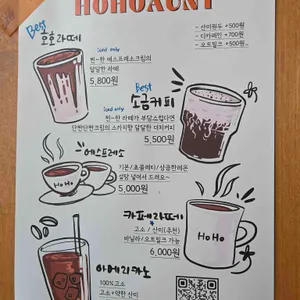 HOHOAUNT
- 산미원두 +500원
- 디카페인 +700원
- 오트밀크 +500원
Best
호호라떼
iced only
찐-한 에스프레소크림의
달달한 라떼
5,800원
Best
iced only
소금커피
찐-한 라떼가 부담스럽다면
단짠단짠크림의 스카치향 달달한 더치커피
5,500원
에스프레소
기본 / 초콜레티 / 상큼한레몬
설탕 넣어서 드려요~
5,000원
HoHo
카페라떼
고소 / 산미(추천)
바닐라 / 오트밀크 가능
6,000원
HoHo
아메리카노
100% 고소
고소+약한 산미